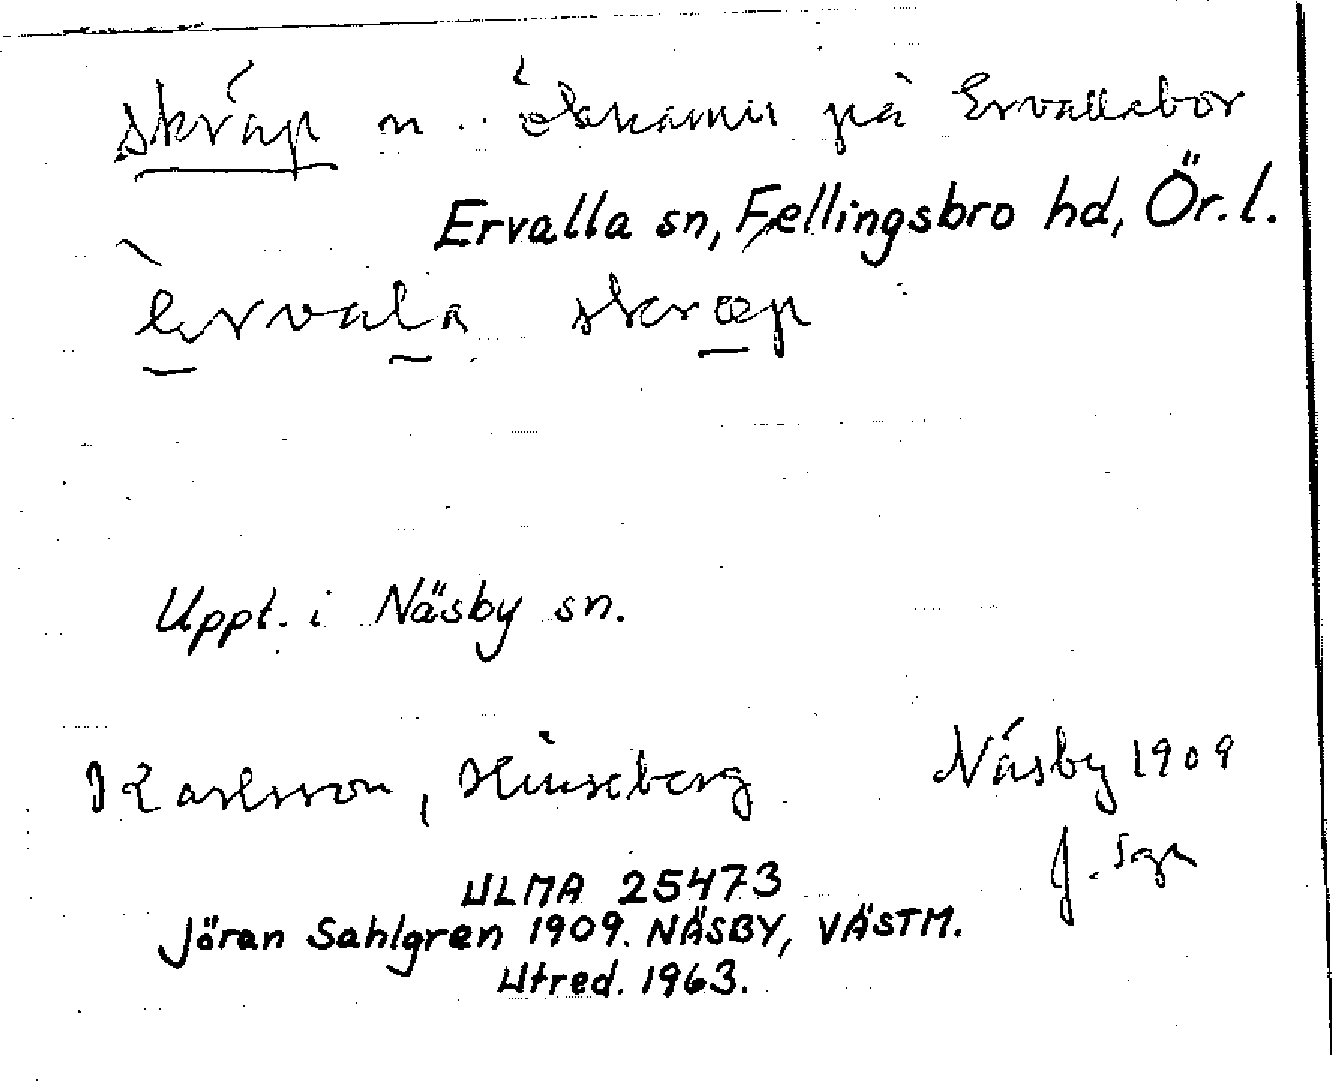 skräp n. öknamn på Ervallabor
Ervalla sn, Fellingsbro hd, Ör. l.
ervala skræp
Uppt. i Näsby sn.
Karlsson, Hinseberg
Näsby 1909
J. Sgn
ULMA 25473
Jöran Sahlgren 1909. NÄSBY, VÄSTM.
Utred. 1963.